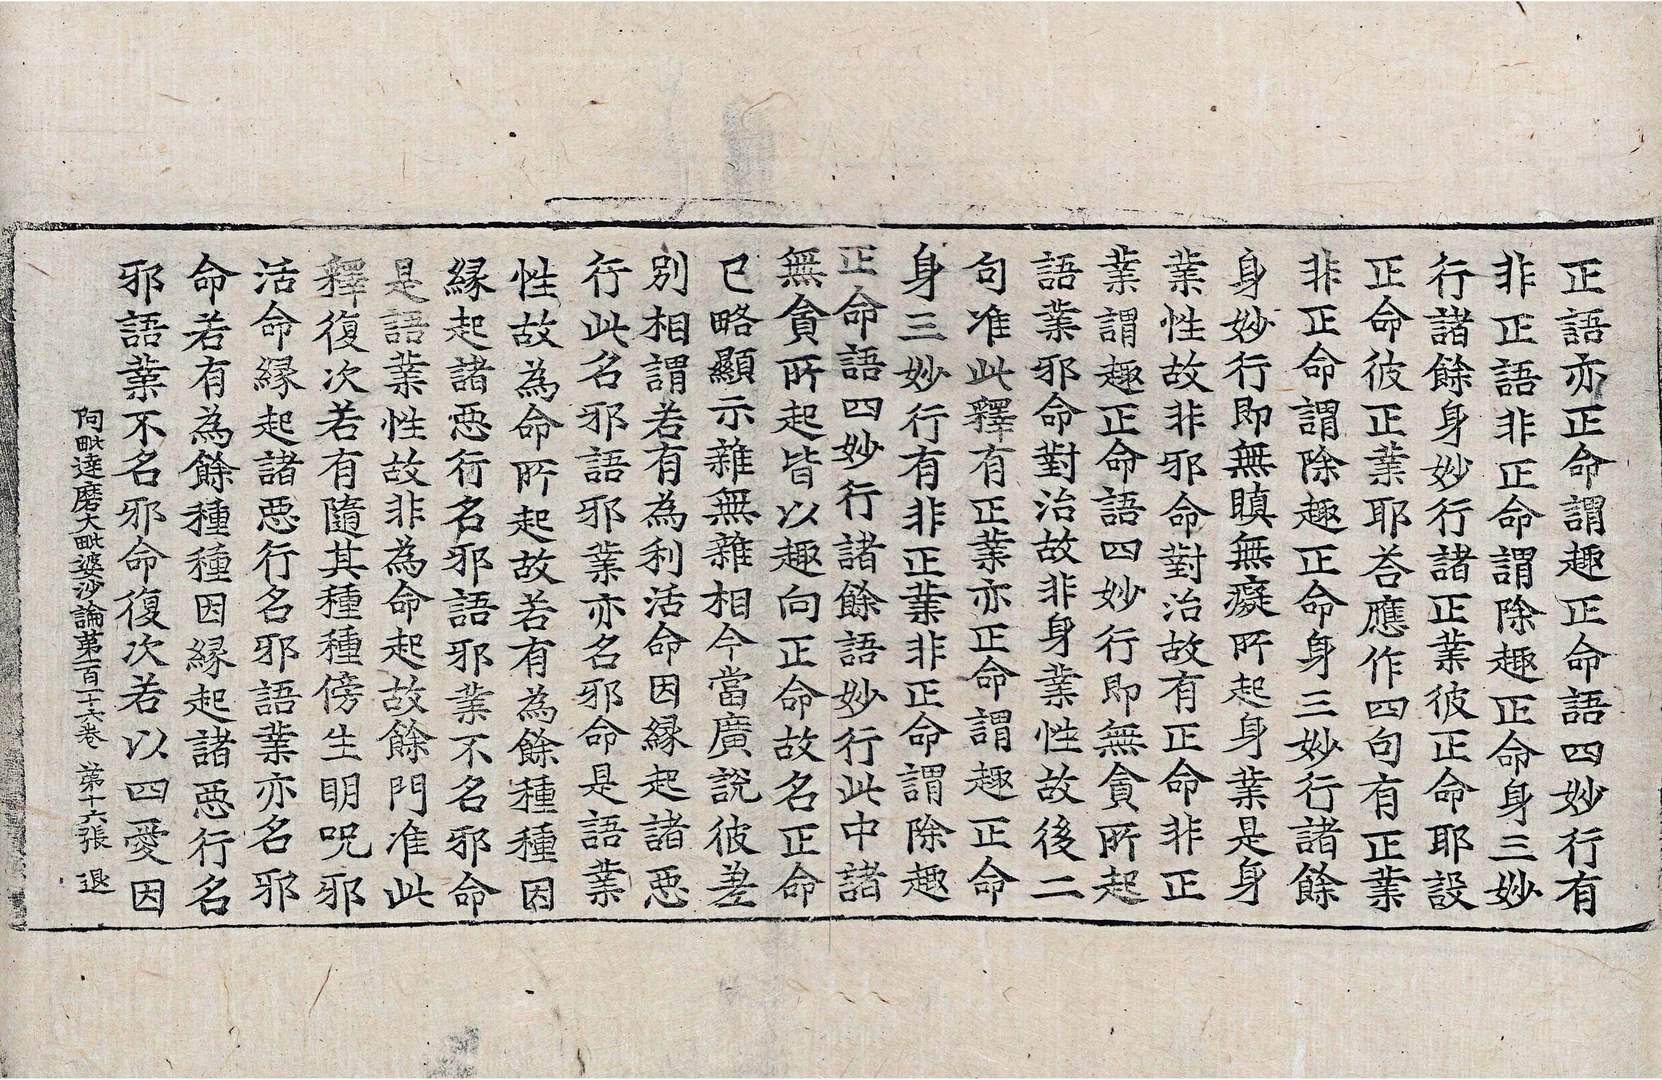 正語亦正命謂趣正命語四妙行有
非正語非正命謂除趣正命身三妙
行諸餘身妙行諸正業彼正命耶設
正命彼正業耶荅應作四句有正業
非正命謂除趣正命身三妙行諸餘
身妙行即無瞋無癡所起身業是身
業性故非邪命對治故有正命非正
業謂趣正命語四妙行即無貪所起
語業邪命對治故非身業性故後二
句准此釋有正業亦正命謂趣正命
身三妙行有非正業非正命謂除趣
正命語四妙行諸餘語妙行此中諸
無貪所起皆以趣向正命故名正命
已略顯示雜無雜相今當廣說彼差
別相謂若有為利活命因緣起諸惡
行此名邪語邪業亦名邪命是語業
性故為命所起故若有為餘種種因
緣起諸惡行名邪語邪業不名邪命
是語業性故非為命起故餘門准此
釋復次若有隨其種種傍生明呪邪
活命緣起諸惡行名邪語業亦名邪
命若有為餘種種因緣起諸惡行名
邪語業不名邪命復次若以四愛因
阿毗達磨大毗婆沙論第一百一十六卷 第十六張 退